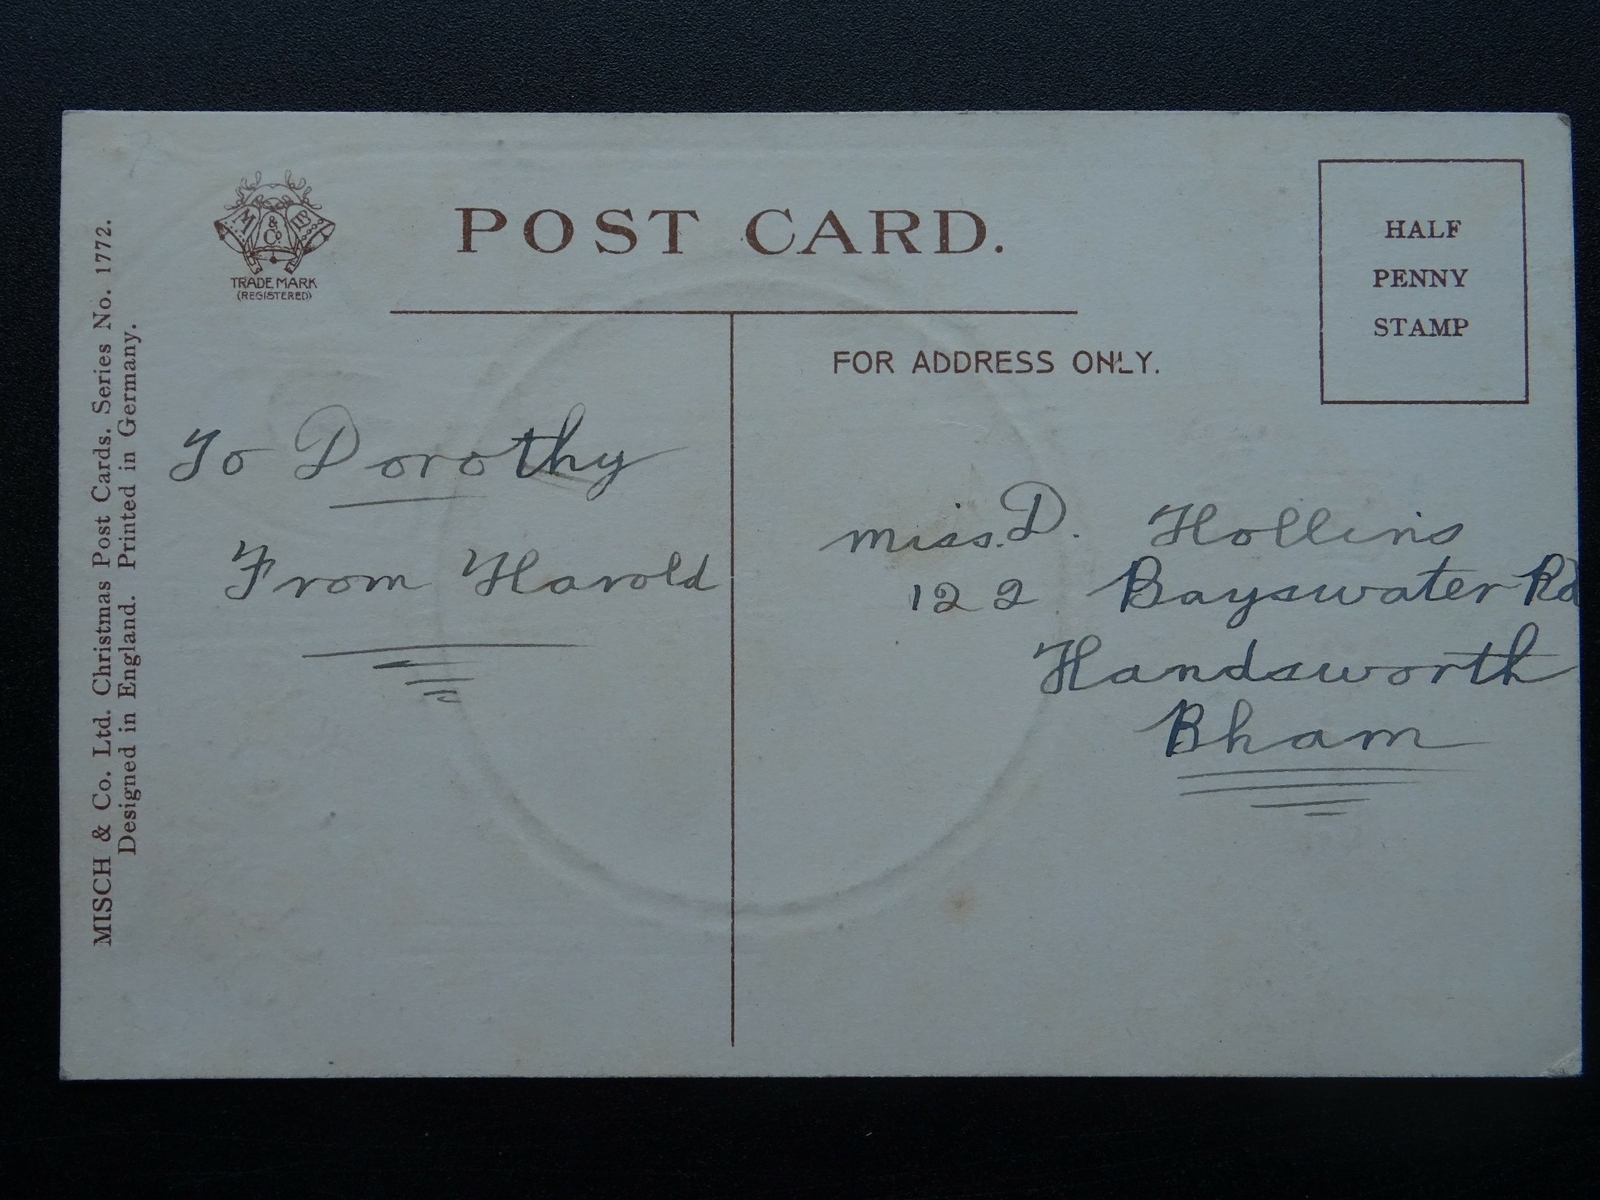 MISCH & Co. Ltd. Christmas Post Cards. Series No. 1772.
Designed in England. Printed in Germany.
M & Co. Ld
TRADE MARK
(REGISTERED)
POST CARD.
HALF
PENNY
STAMP
FOR ADDRESS ONLY.
To Dorothy
From Harold
Miss. D. Hollins
122 Bayswater Rd
Handsworth
Bham